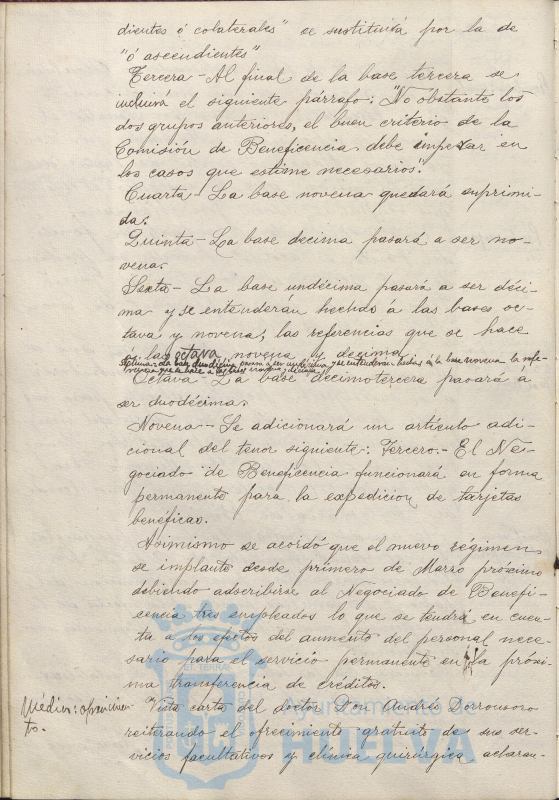 dientes ó colaterales" se sustituirá por la de
"ó ascendientes"
Tercera - Al final de la base tercera se
incluirá el siguiente párrafo: "No obstante los
dos grupos anteriores, el buen criterio de la
Comisión de Beneficencia debe imperar en
los casos que estime necesarios".
Cuarta - La base novena quedará suprimi-
da.
Quinta - La base decima pasará a ser no-
vena.
Sexta - La base undécima pasará a ser déci-
ma y se entenderán hechas á las bases oc-
tava y novena, las referencias que se hace
a las octava novena y decima
Séptima: La base duodécima pasará a ser undécima y se entenderán hechas á la base novena la refe-
rencia que se hace a las bases novena y décima.
Octava - La base decimotercera pasará á
ser duodécima.
Novena - Se adicionará un artículo adi-
cional del tenor siguiente: Tercero.- El Ne-
gociado de Beneficencia funcionará en forma
permanente para la expedicion de tarjetas
benéficas.
Asimismo se acordó que el nuevo régimen
se implante desde primero de Marzo próximo
debiendo adscribirse al Negociado de Benefi-
cencia tres empleados lo que se tendrá en cuen-
ta a los efectos del aumento del personal nece-
sario para el servicio permanente en la próxi-
ma transferencia de créditos.
Medios: ofrecimien-
to.
Vista carta del doctor Don Andrés Dorronsoro
reiterando el ofrecimiento gratuito de sus ser-
vicios facultativos y clínica quirúrgica aclaran-
Ayuntamiento de
HUELVA